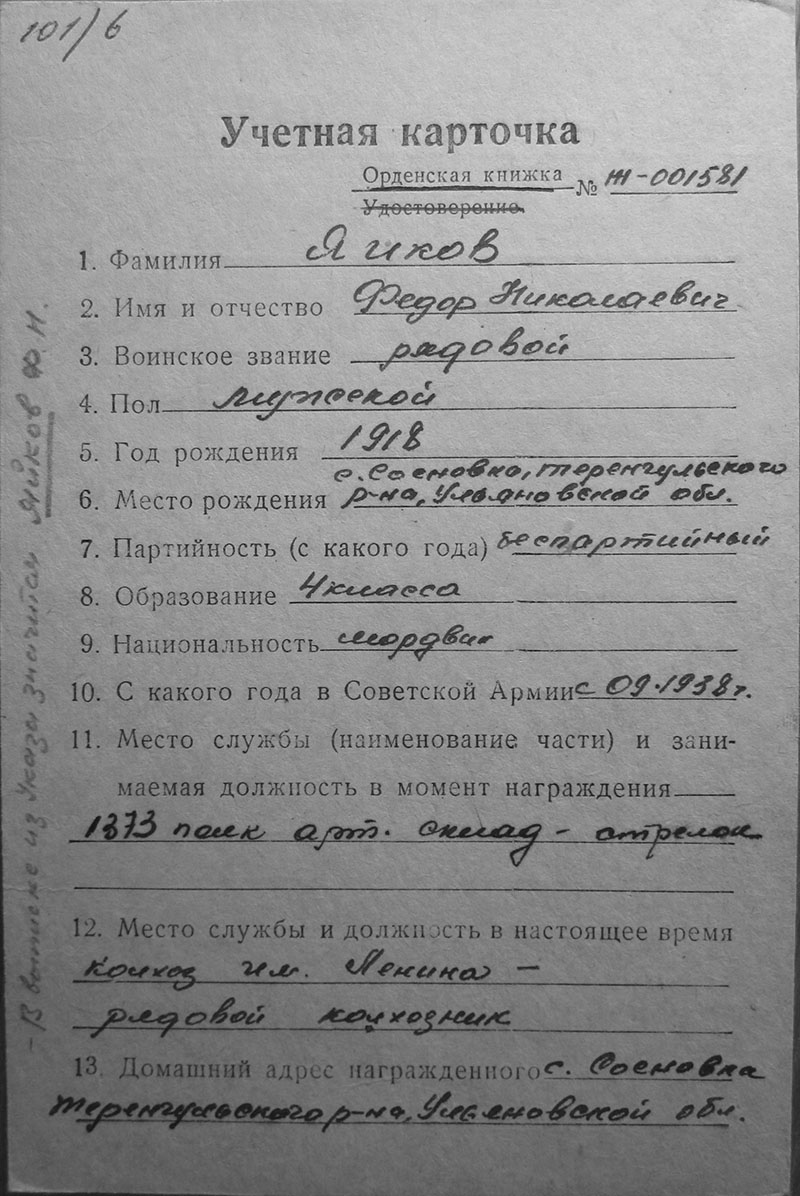 101/6
Учетная карточка
Орденская книжка № Т-001581
Удостоверение
1. Фамилия Яиков
2. Имя и отчество Федор Николаевич
3. Воинское звание рядовой
4. Пол мужской
5. Год рождения 1918
с. Сосновка, Теренгульского
6. Место рождения р-на, Ульяновской обл.
7. Партийность (с какого года) беспартийный
8. Образование 4 класса
9. Национальность мордвин
10. С какого года в Советской Армии с 09.1938 г.
11. Место службы (наименование части) и зани-
маемая должность в момент награждения
1373 полк арт. склад - стрелок
12. Место службы и должность в настоящее время
колхоз им. Ленина -
рядовой колхозник
13. Домашний адрес награжденного с. Сосновка
Теренгульского р-на, Ульяновской обл.
- В выписке из Указа значится Яйков Ф Н.